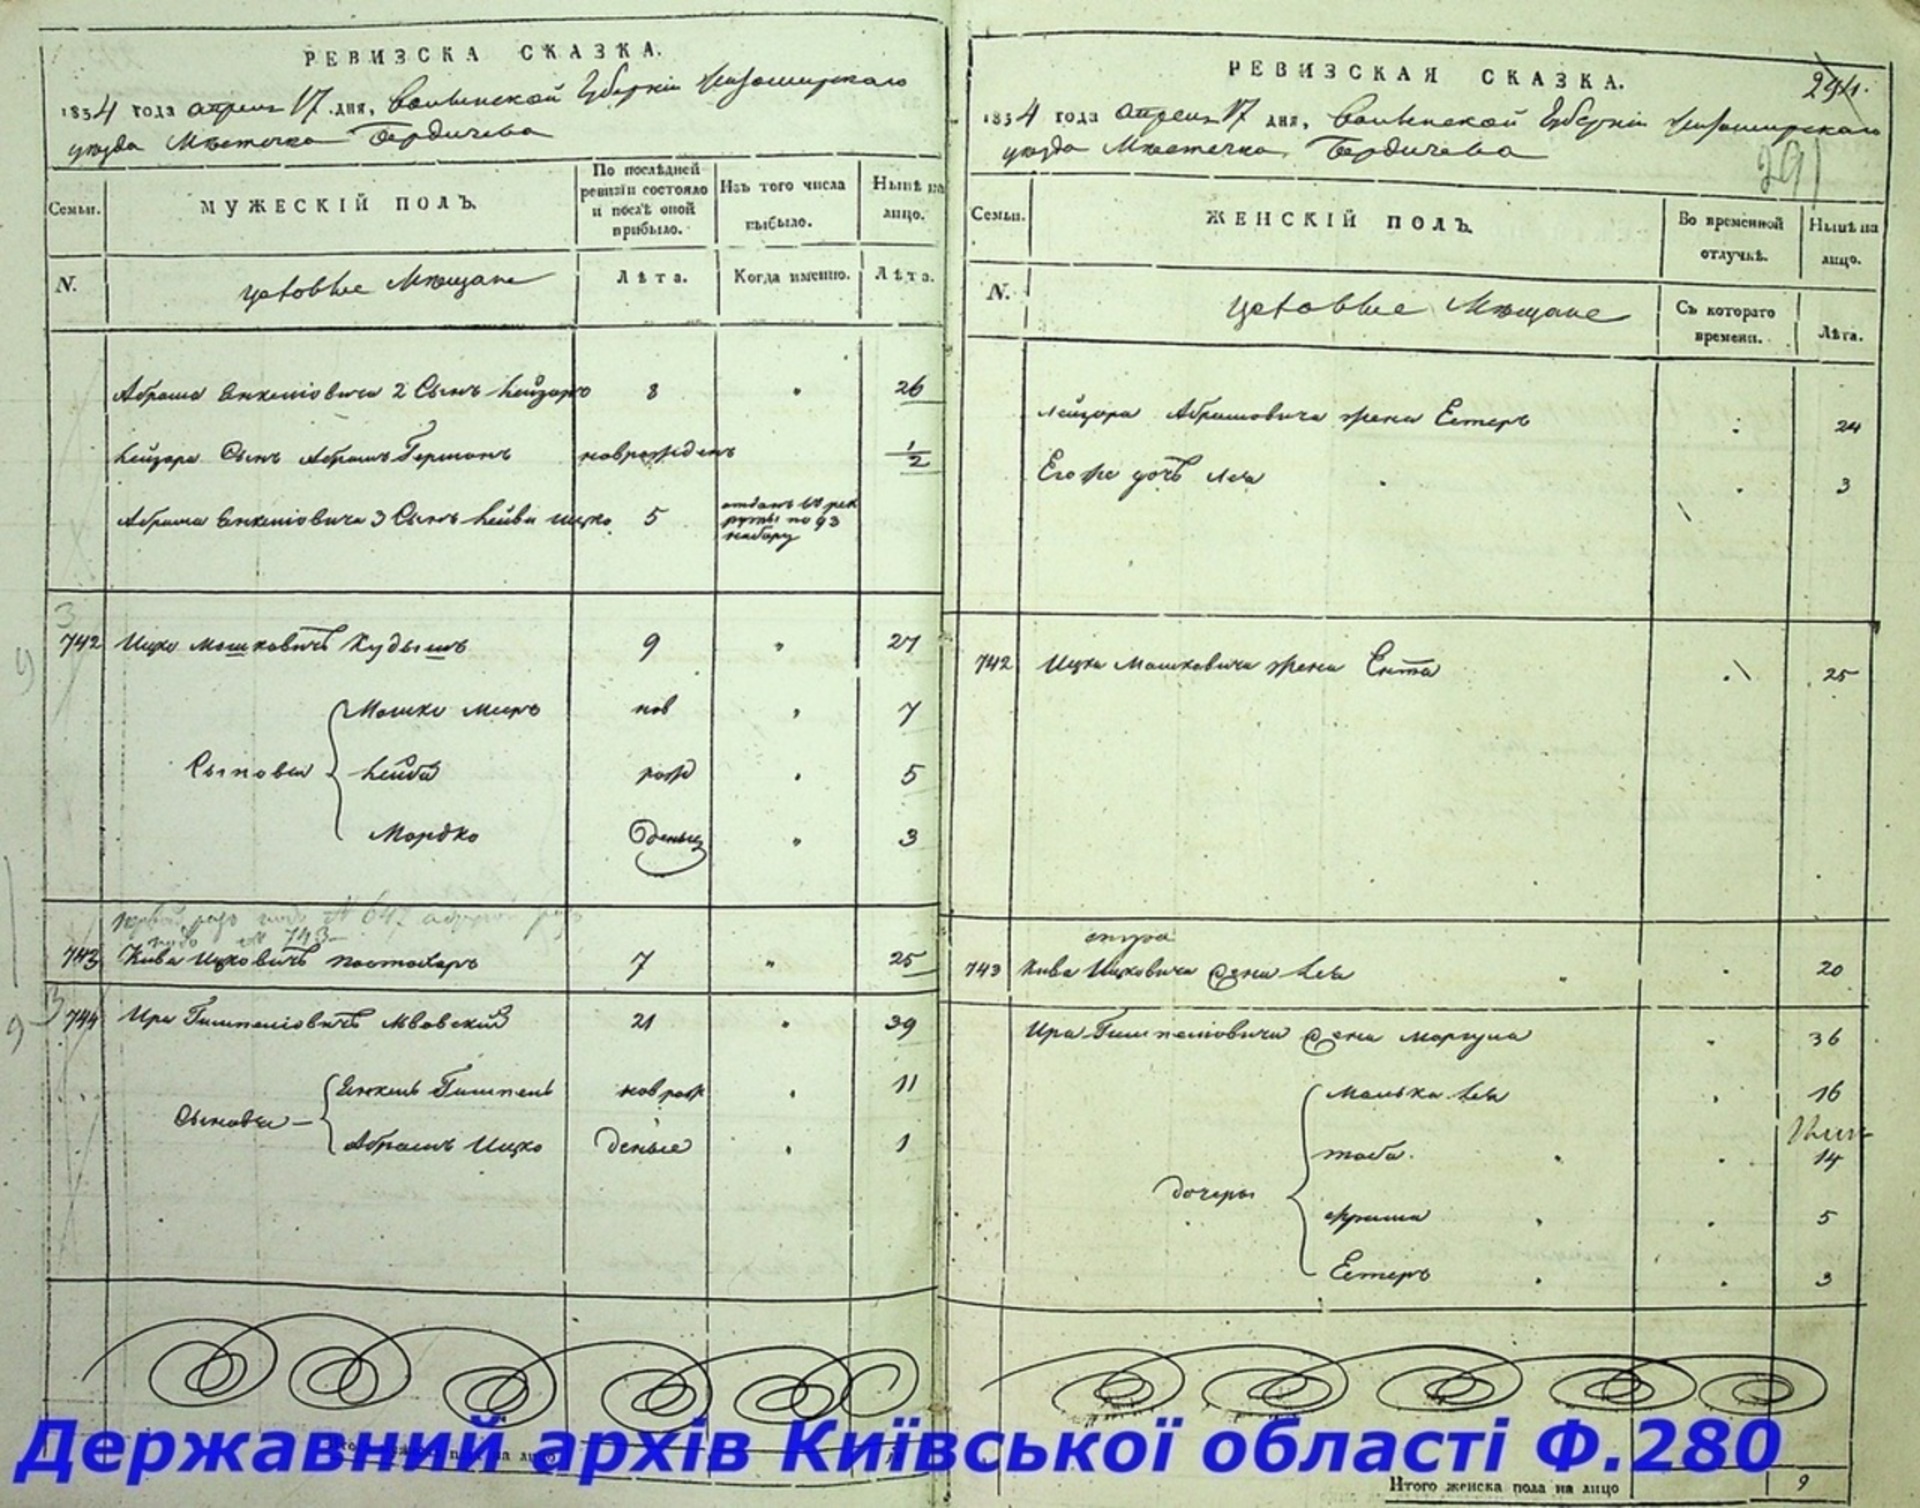 РЕВИЗСКА СКАЗКА.
1834 года апреля 17 дня, Волынской Губернїи Житомирскаго
уезда Местечка Бердичева
Семьи.
МУЖЕСКІЙ ПОЛЪ.
По послѣдней ревизіи состояло и послѣ оной прибыло.
Изъ того числа выбыло.
Нынѣ на лицо.
N.
Цеховые Мещане
Лѣта.
Когда именно.
Лѣта.
Абрама Янкелiовича 2 Сынъ Лейзоръ 8 " 26
Лейзора Сынъ Абрамъ Гершонъ новорожденъ 1/2
Абрама Янкелiовича 3 Сынъ Лейба Ицко 5 отданъ въ рекруты по 93 набору
742 Ицко Мошковичъ Кудышъ 9 " 27
Мошко Меиръ нов " 7
Сыновья Лейба рожд " 5
Мордко Деные " 3
743
743 Кива Ицковичъ 7 " 25
744 Ира Гимпелiовичъ Львовскiй 21 " 39
Янкель Гимпель новрож " 11
Сыновья
Абрамъ Ицко деные " 1
РЕВИЗСКАЯ СКАЗКА.
291
1834 года апреля 17 дня, Волынской Губернїи Житомирскаго
уезда Местечка Бердичева
Семьи.
ЖЕНСКІЙ ПОЛЪ.
Во временной отлучкѣ.
Нынѣ на лицо.
N.
Цеховые Мещане
Съ котораго времени.
Лѣта.
Лейзора Абрамовича жена Естеръ 24
Его же дочь Лея 3
742 Ицка Мошковича жена Ента 25
743 Кива Ицковича жена Лея 20
Ира Гимпелiовича жена Маргуля 36
Малька Лея 16
Тоба 14
дочери
Фрима 5
Естеръ 3
Итого женска пола на лицо 9
Державний архів Київської області Ф.280